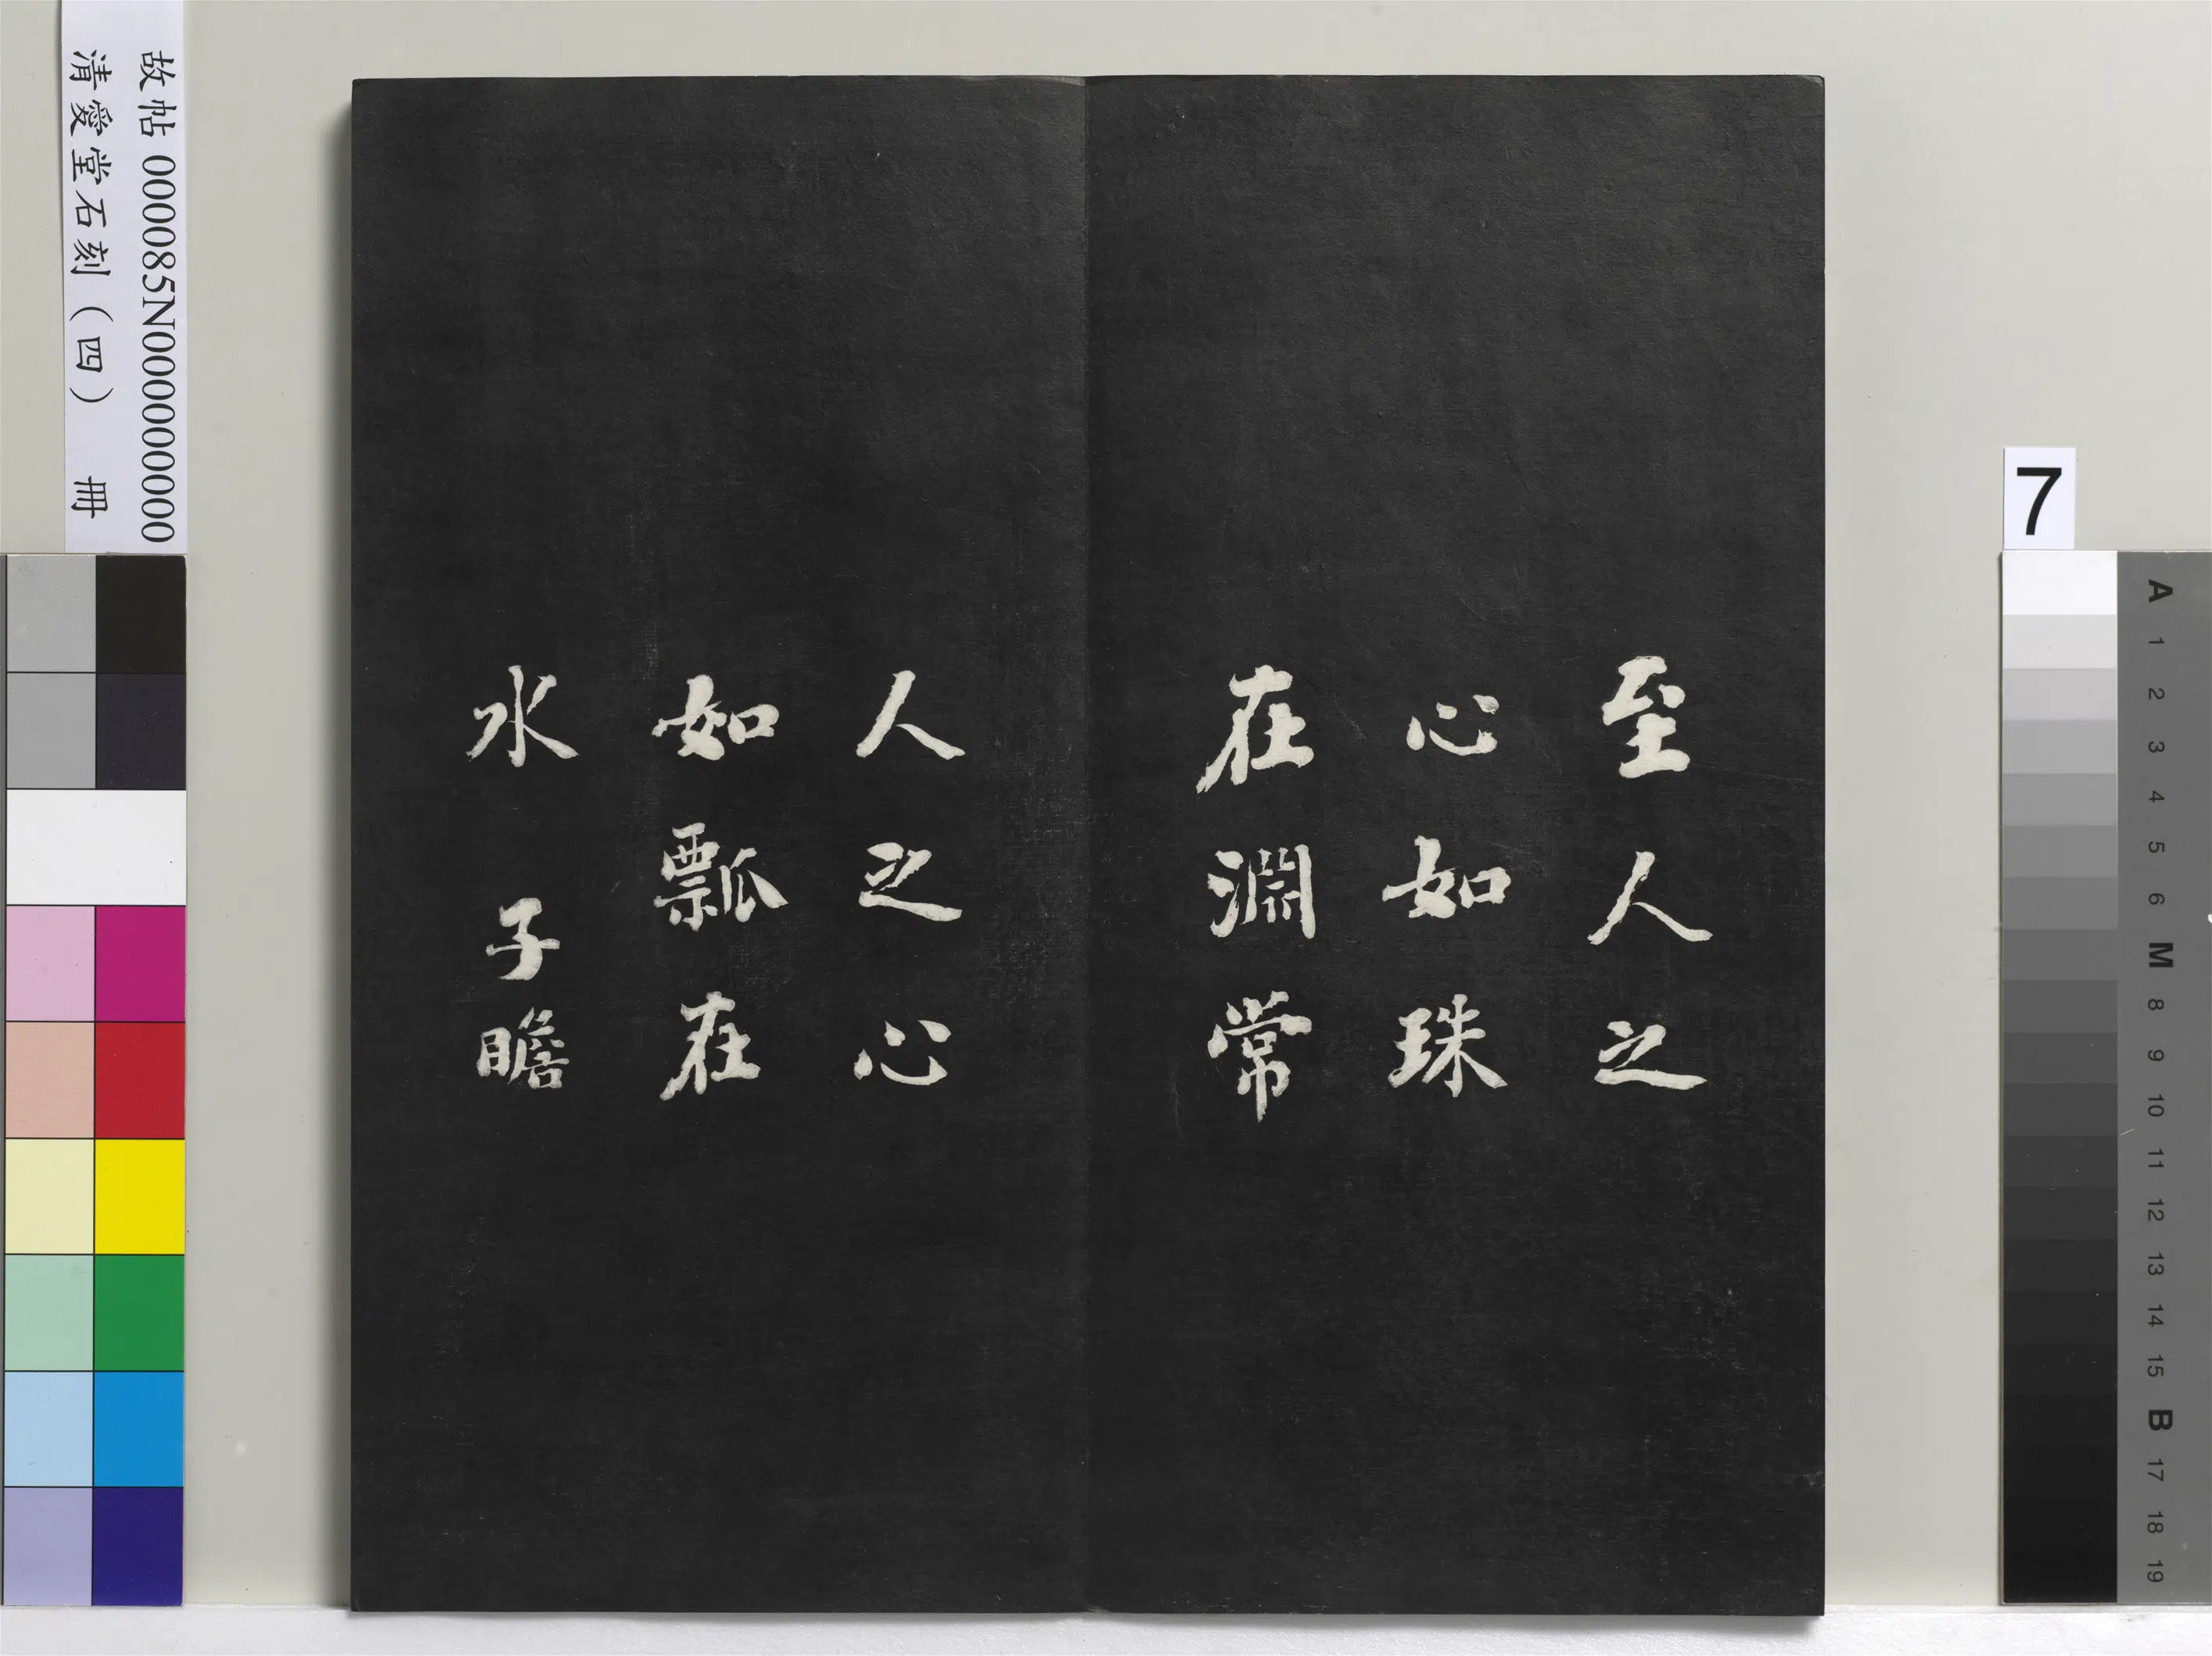 故帖 000085N000000000
清愛堂石刻（四） 冊
7
至人之
心如珠
在淵常
人之心
如瓢在
水 子瞻
A
1
2
3
4
5
6
M
8
9
10
11
12
13
14
15
B
17
18
19